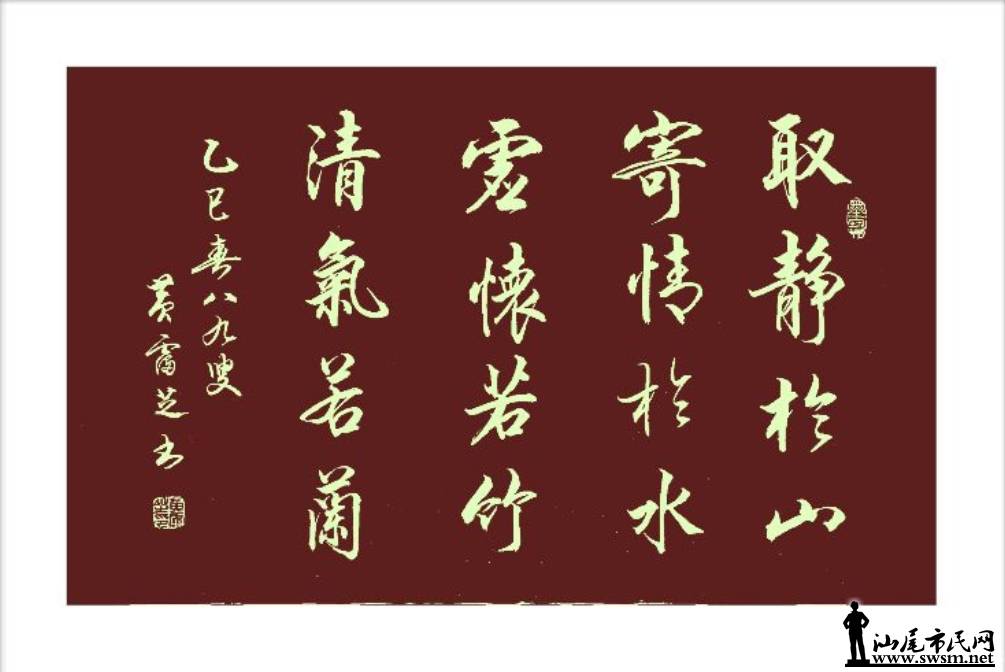 取静於山
寄情於水
虚懷若竹
清氣若蘭
乙巳春八九叟
黄霭芝书
汕尾市民网
www.swsm.net